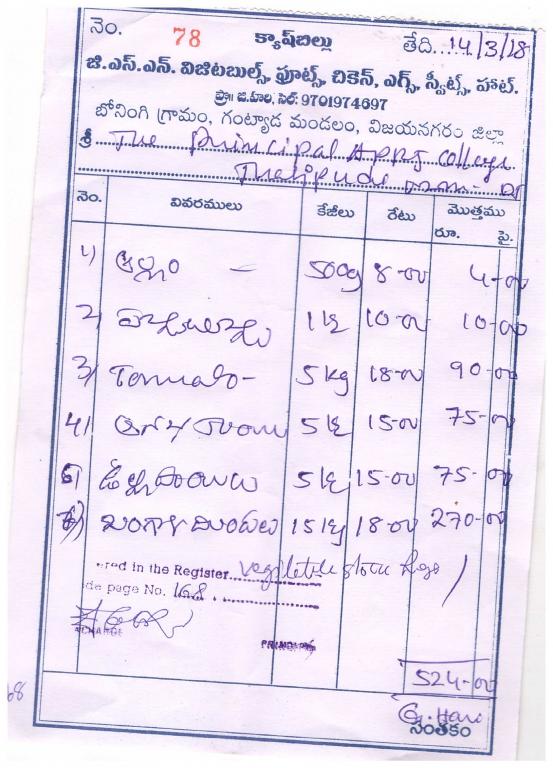 నెం. 78 క్యాష్‌బిల్లు తేది. 14/3/18
జి.ఎస్.ఎన్. విజిటబుల్స్, ఫ్రూట్స్, చికెన్, ఎగ్స్, స్వీట్స్, హాట్.
ప్రొ॥ జి.హరి, సెల్: 9701974697
బోనింగి గ్రామం, గంట్యాడ మండలం, విజయనగరం జిల్లా
శ్రీ The Principal college
నెం. వివరములు కేజీలు రేటు మొత్తము
రూ. పై.
1) అల్లం - 500g 8-00 4-00
2) 1 kg 10-00 10-00
3) Tomato- 5 kg 18-00 90-00
4) 5 kg 15-00 75-00
5) ఉల్లిపాయలు 5 kg 15-00 75-00
6) బంగాళదుంపలు 15 kg 18-00 270-00
red in the Register vegiletable store Rege
de page No. 168
CHARGE PRINCIPAL
524-00
G. Hari
సంతకం
68